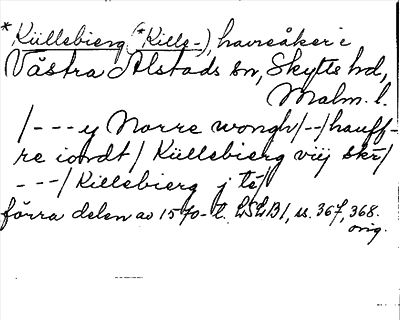 *Küllebierg (*Kille-), havreåker i
Västra Alstads sn, Skytts hd,
Malm. l.
/--- y Norre wongh/--/hauff-
re iordt/ Küllebierg viij skr/
---/ Killebierg j té/
förra delen av 1570-t. LSLB1, ss. 367, 368.
orig.